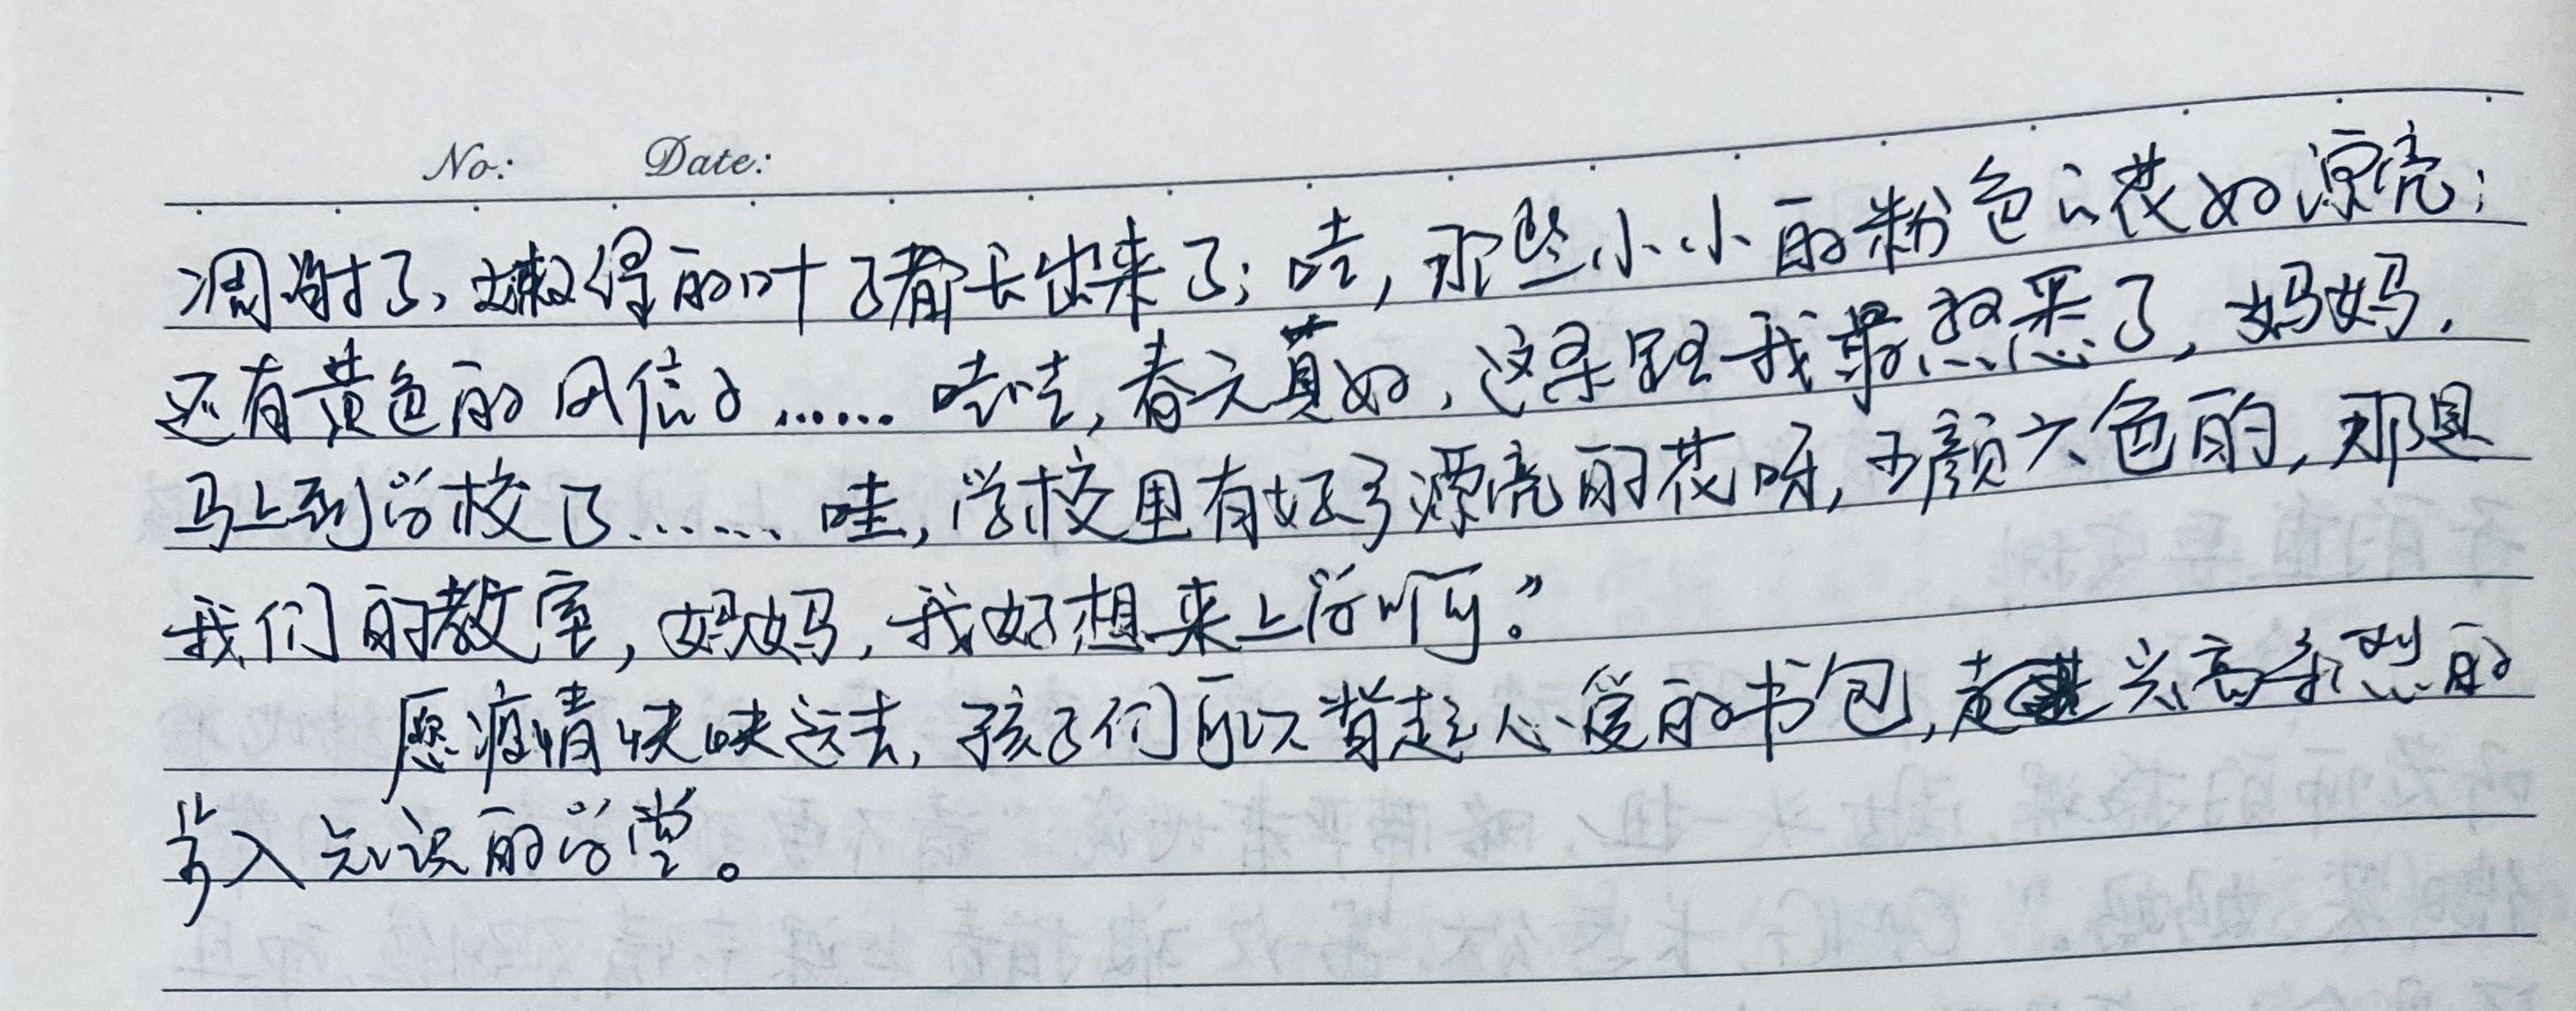 No: Date:
凋谢了，嫩绿的叶子都长出来了；哇，那些小小的粉色的花好漂亮；
还有黄色的风信子……哇哇，春天真好，这条路我最熟悉了，妈妈，
马上到学校了……哇，学校里有好多漂亮的花呀，五颜六色的，那是
我们的教室，妈妈，我好想来上学啊。”
愿疫情快快过去，孩子们可以背起心爱的书包，兴高采烈的
步入知识的学堂。